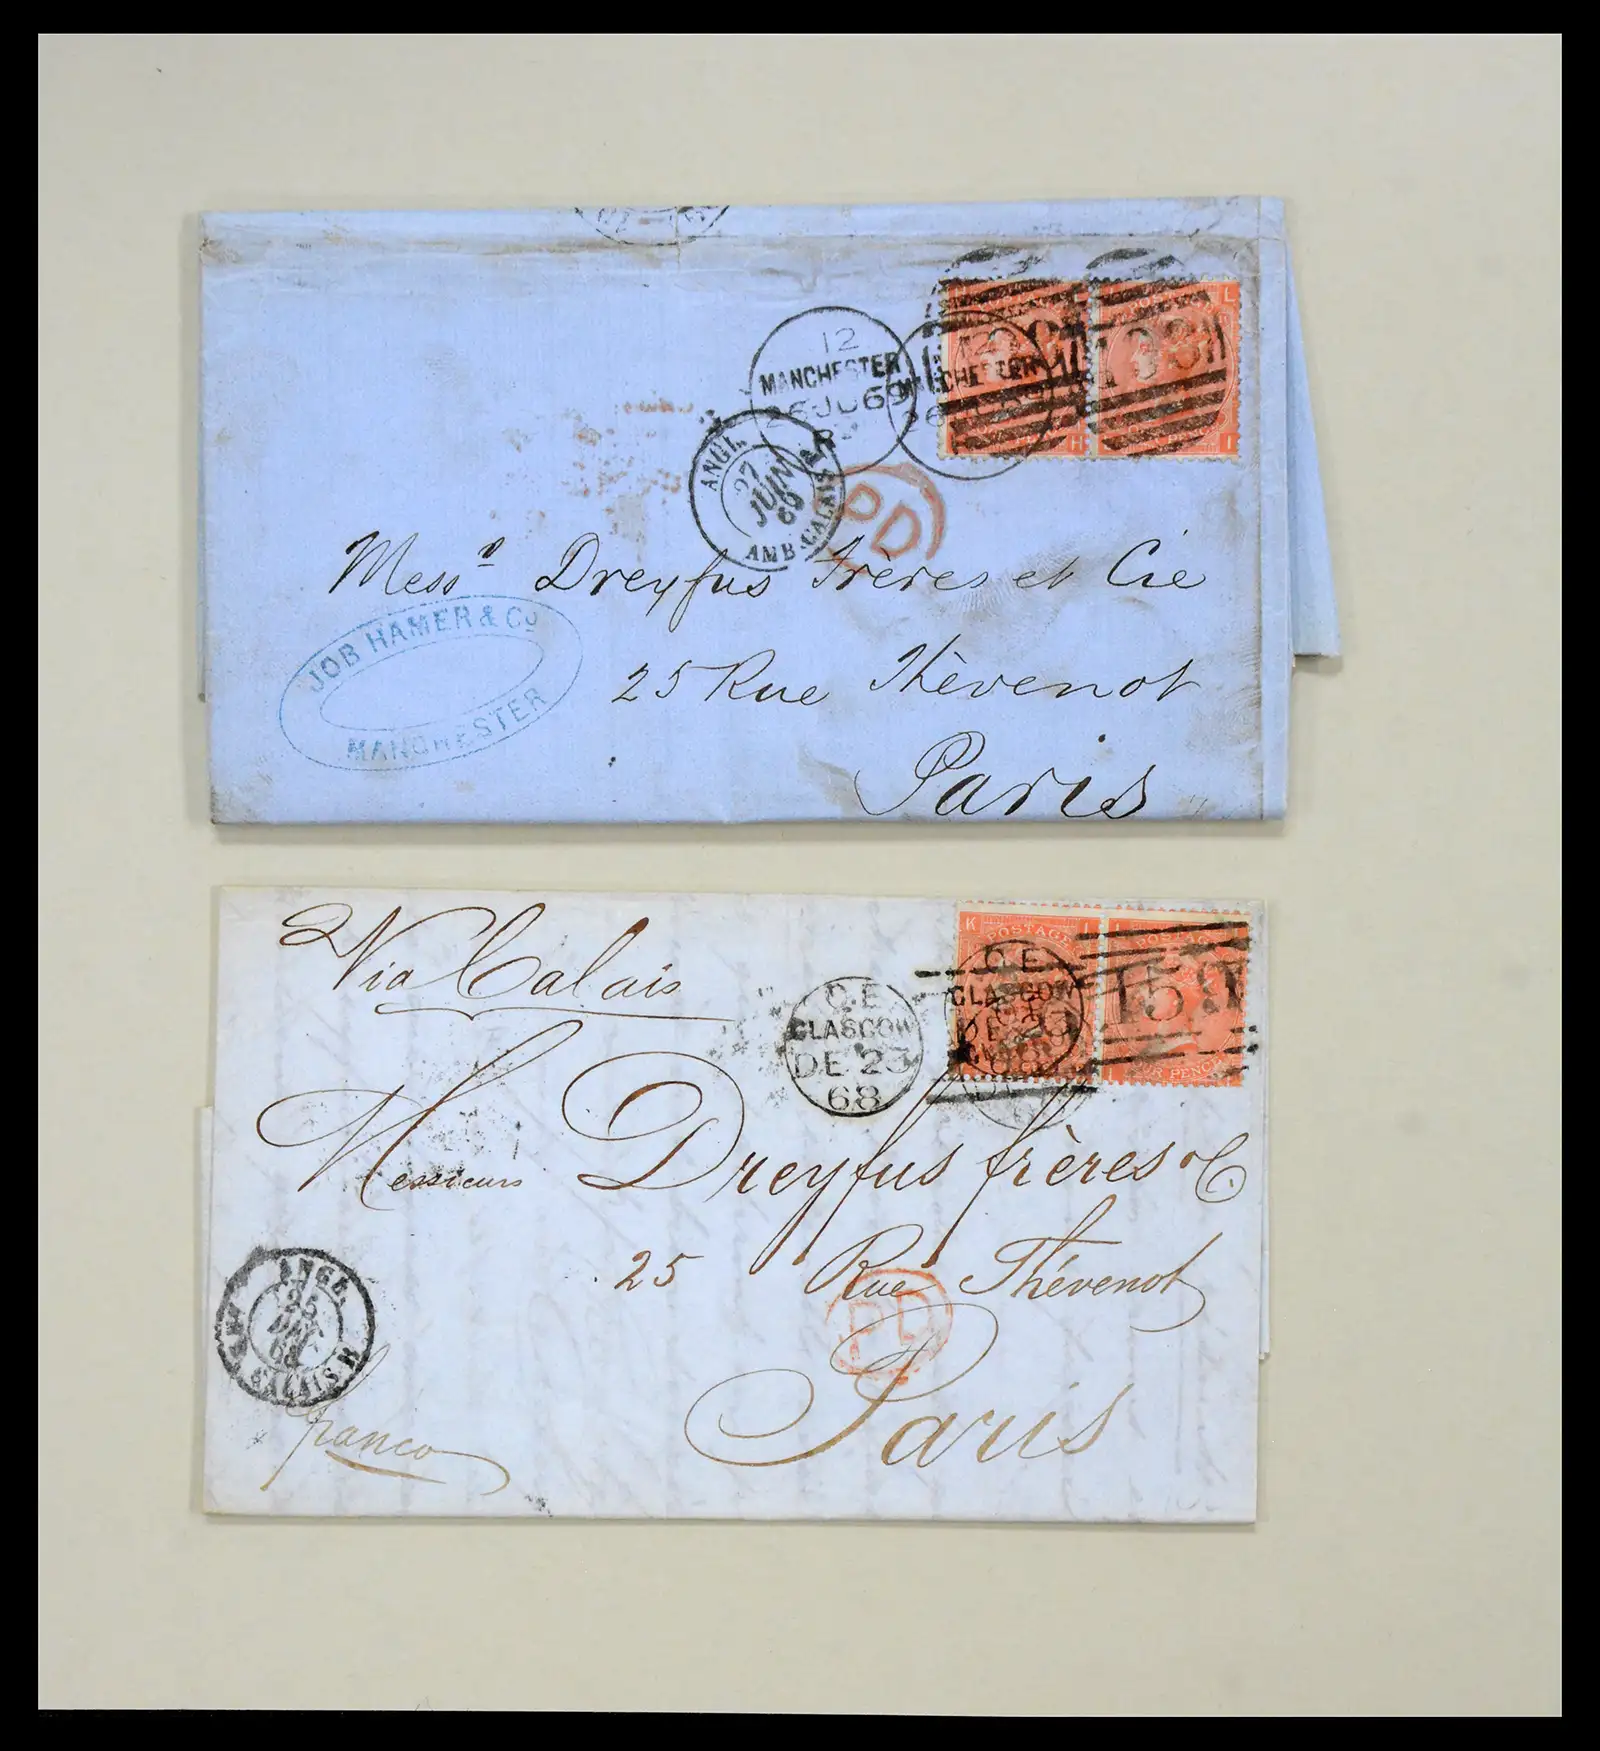 12
MANCHESTER
26 JU 69
MANCHESTER
498
L
H
I
ANGL.
27
JUIN
69
AMB. CALAIS
PD
Mess.rs Dreyfus Frères et Cie
25 Rue Thèvenot
Paris
JOB HAMER & Co
MANCHESTER
Via Calais
K
I
POSTAGE
O.E
GLASGOW
DE 23
68
O.E
GLASGOW
DE 23
68
159
FOUR PENCE
Messieurs Dreyfus frères & C.
25 Rue Thévenot
PD
Paris
ANGL.
25
DEC.
68
AMB. CALAIS
franco